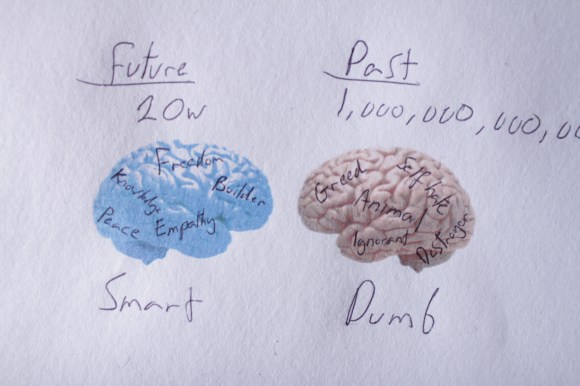 Future
20w
Freedom
Knowledge
Builder
Peace
Empathy
Smart
Past
1,000,000,000,00
Greed
Self hate
Animal
Ignorant
Destroyer
Dumb